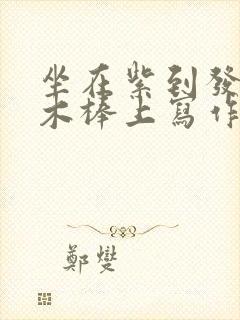 坐在紫到發
木棒上寫作
鄭燮